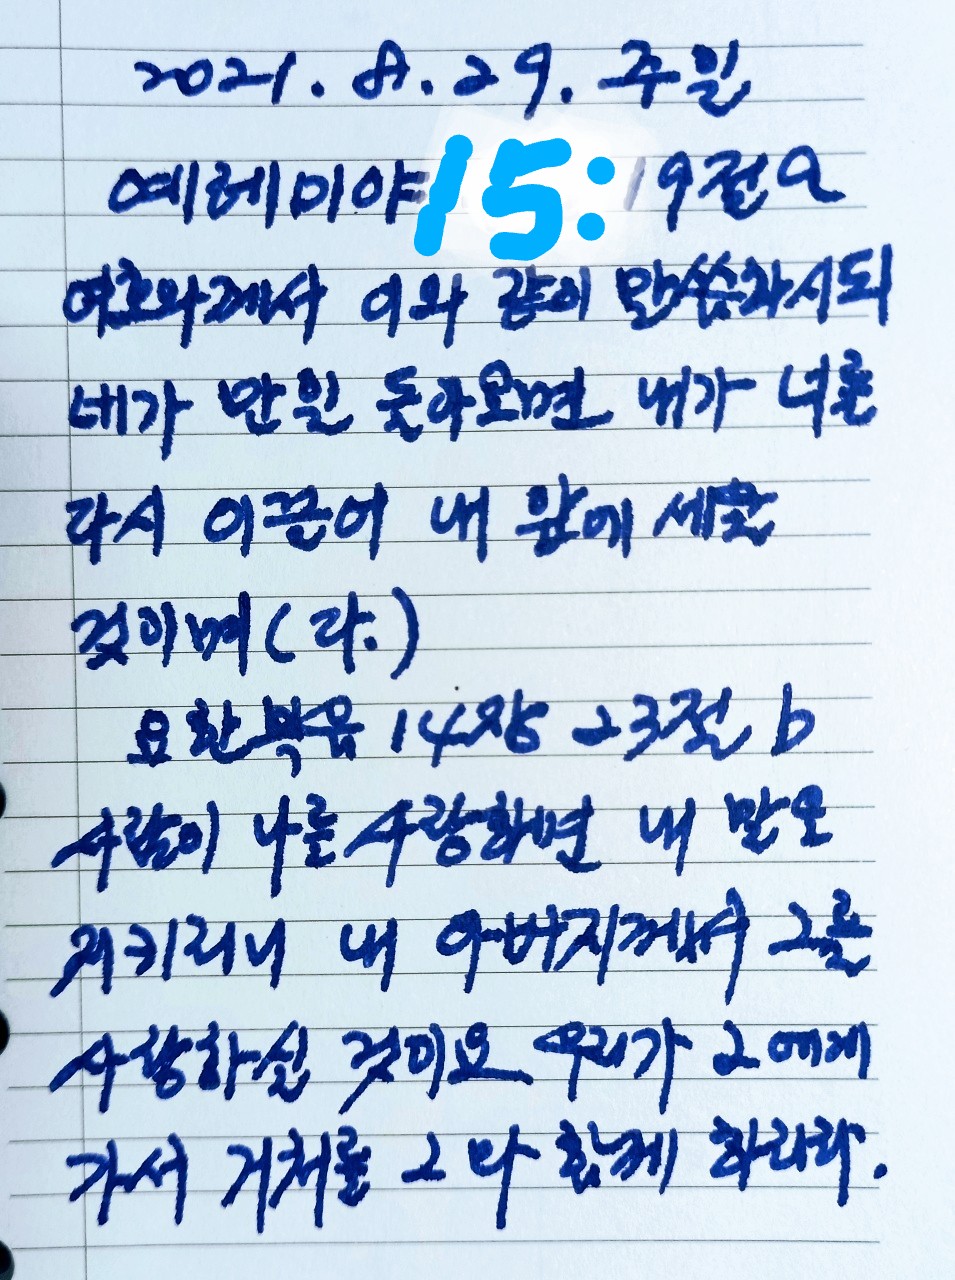 2021. 8. 29. 주일
예레미야 15:19절a
여호와께서 이와 같이 말씀하시되
네가 만일 돌아오면 내가 너를
다시 이끌어 내 앞에 세울
것이며(다.)
요한복음 14장 23절 b
사람이 나를 사랑하면 내 말을
지키리니 내 아버지께서 그를
사랑하실 것이요 우리가 그에게
가서 거처를 그와 함께 하리라.